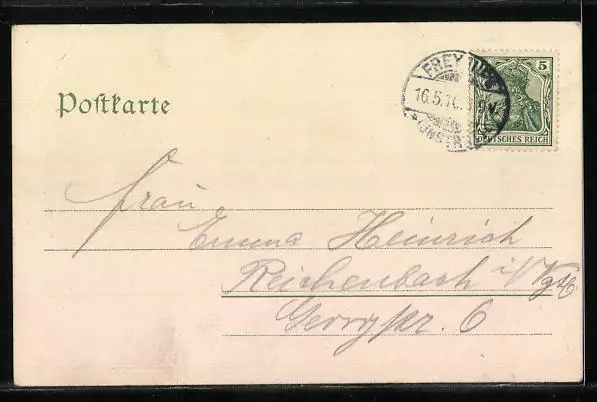 Postkarte
FREYBURG
16.5.10.
*(UNSTRUT
5
DEUTSCHES REICH
Frau
Emma Heinrich
Reichenbach i/Vgtl.
Georgstr. 6